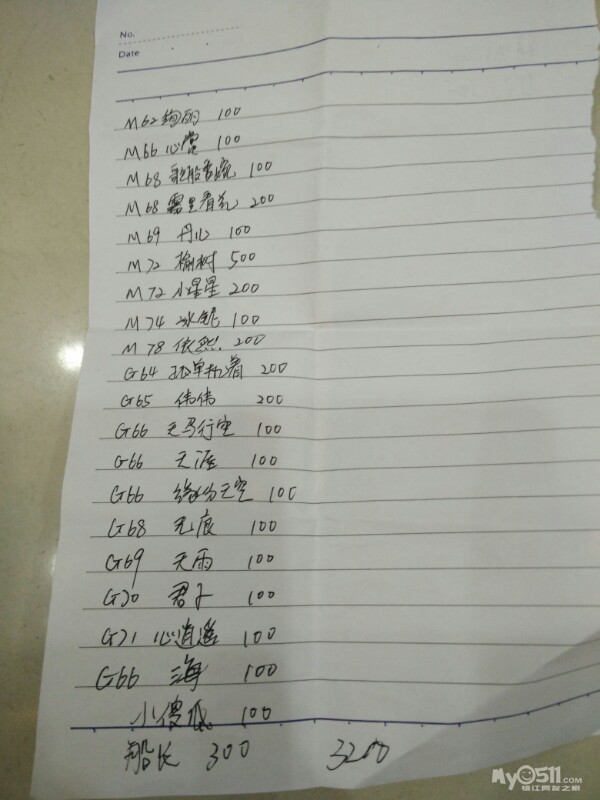 No.
Date
M62 绚丽 100
M66 心棠 100
M68 100
M68 雾里看花 200
M69 丹心 100
M72 榆树 500
M72 小星星 200
M74 冰 100
M78 依然. 200
G64 孤单执着 200
G65 伟伟 200
G66 天马行空 100
G66 天涯 100
G66 缘份天空 100
G68 无痕 100
G69 天雨 100
G70 君子 100
G71 心逍遥 100
G66 海 100
小傻瓜 100
船长 300 3200
My0511.com
镇江网友之家